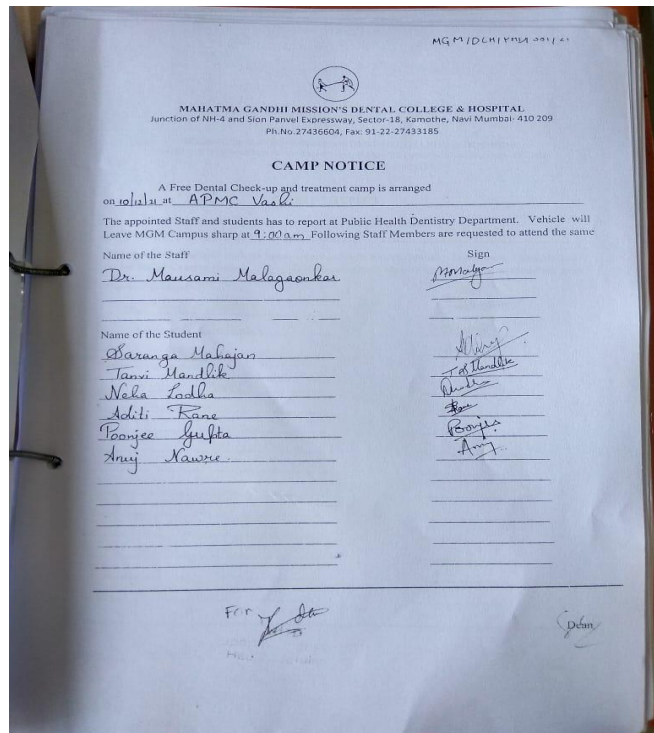 MAHATMA GANDHI MISSION'S DENTAL COLLEGE & HOSPITAL
Junction of NH-4 and Sion Panvel Expressway, Sector-18, Kamothe, Navi Mumbai- 410 209
Ph.No.27436604, Fax: 91-22-27433185
CAMP NOTICE
A Free Dental Check-up and treatment camp is arranged
on 10/12/21 at APMC Vashi
The appointed Staff and students has to report at Public Health Dentistry Department. Vehicle will
Leave MGM Campus sharp at 9:00am Following Staff Members are requested to attend the same
Name of the Staff Sign
Dr. Mausami Malagaonkar
Name of the Student
Saranga Mahajan
Tanvi Mandlik
Neha Lodha
Aditi Rane
Poonjee Gupta
Anuj Nawre.
Dean